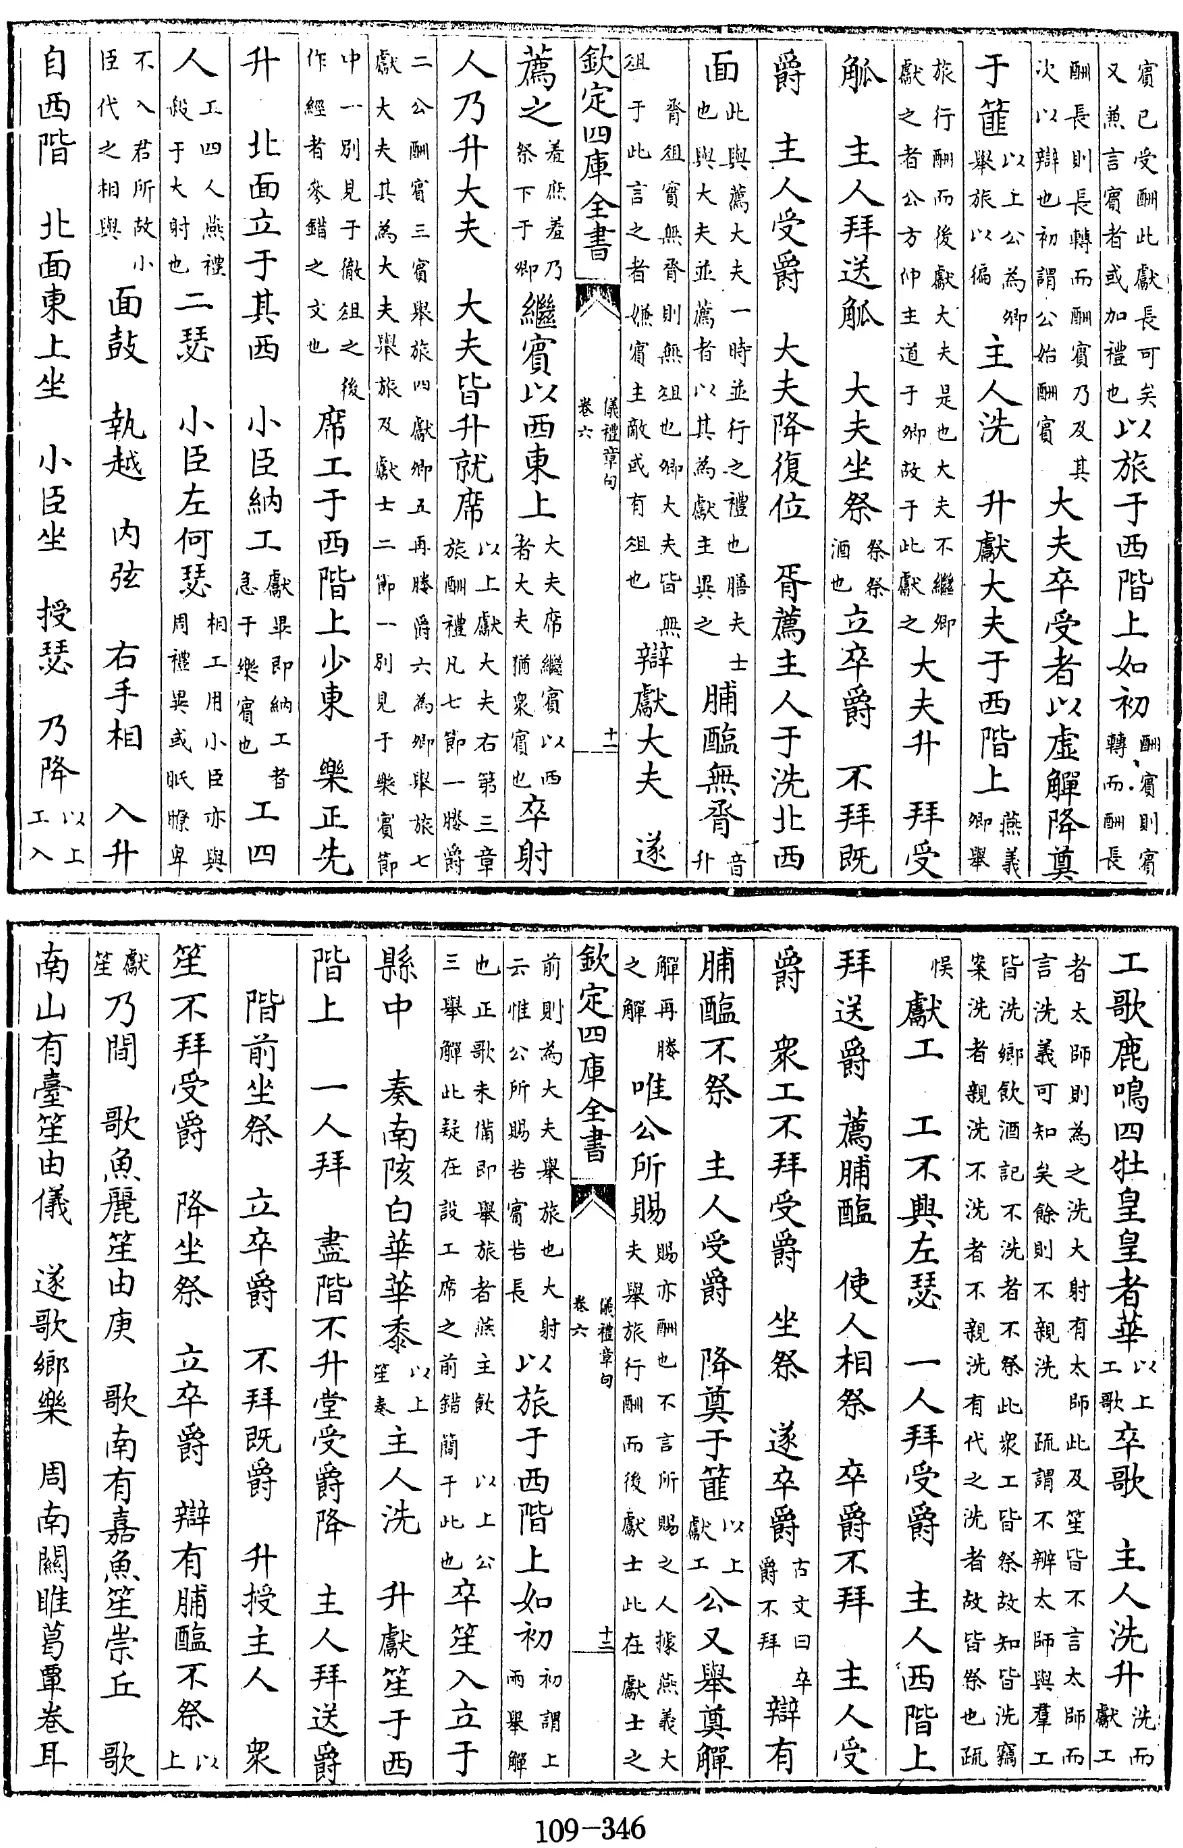 賓已受酬此獻長可矣又兼言賓者或加禮也以旅于西階上如初酬賓則賓轉而酬長
酬長則長轉而酬賓乃及其次以辯也初謂公始酬賓大夫卒受者以虛觶降奠
于篚以上公為卿舉旅以徧主人洗 升獻大夫于西階上燕義卿舉
旅行酬而後獻大夫是也大夫不繼卿獻之者公方仲主道于卿故于此獻之大夫升 拜受
觚 主人拜送觚 大夫坐祭祭祭酒也立卒爵 不拜既
爵 主人受爵 大夫降復位 胥薦主人于洗北西
面此與薦大夫一時並行之禮也膳夫士也與大夫並薦者以其為獻主異之脯醢無脀音升
脀俎實無脀則無俎也卿大夫皆無俎于此言之者嫌賓主敵或有俎也辯獻大夫 遂
欽定四庫全書 儀禮章句 卷六 十一
薦之羞庶羞乃祭下于卿繼賓以西東上大夫席繼賓以西者大夫猶衆賓也卒射
人乃升大夫 大夫皆升就席以上獻大夫右第三章旅酬禮凡七節一媵爵
二公酬賓三賓舉旅四獻卿五再媵爵六為卿舉旅七獻大夫其為大夫舉旅及獻士二節一別見于樂賓節
中一別見于徹俎之後作經者參錯之文也席工于西階上少東 樂正先
升 北面立于其西 小臣納工獻畢即納工者急于樂賓也工四
人工四人燕禮殺于大射也二瑟 小臣左何瑟相工用小臣亦與周禮異或眂瞭卑
不入君所故小臣代之相與面鼓 執越 内弦 右手相 入升
自西階 北面東上坐 小臣坐 授瑟 乃降以上工入
工歌鹿鳴四牡皇皇者華以上工歌卒歌 主人洗升洗而獻工
者太師則為之洗大射有太師此及笙皆不言太師而言洗義可知矣餘則不親洗 疏謂不辨太師與羣工
皆洗鄉飲酒記不洗者不祭此衆工皆祭故知皆洗竊案洗者親洗不洗者不親洗有代之洗者故皆祭也疏
悞獻工 工不興左瑟 一人拜受爵 主人西階上
拜送爵 薦脯醢 使人相祭 卒爵不拜 主人受
爵 衆工不拜受爵 坐祭 遂卒爵古文曰卒爵不拜辯有
脯醢不祭 主人受爵 降奠于篚以上獻工公又舉奠觶
觶再媵之觶唯公所賜賜亦酬也不言所賜之人據燕義大夫舉旅行酬而後獻士此在獻士之
欽定四庫全書 儀禮章句 卷六 十二
前則為大夫舉旅也大射云惟公所賜若賓若長以旅于西階上如初初謂上兩舉觶
也正歌未備即舉旅者燕主飲三舉觶此疑在設工席之前錯簡于此也以上公卒笙入立于
縣中 奏南陔白華華黍以上笙奏主人洗 升獻笙于西
階上 一人拜 盡階不升堂受爵降 主人拜送爵
階前坐祭 立卒爵 不拜既爵 升授主人 衆
笙不拜受爵 降坐祭 立卒爵 辯有脯醢不祭以上
獻笙乃間 歌魚麗笙由庚 歌南有嘉魚笙崇丘 歌
南山有臺笙由儀 遂歌鄉樂 周南關雎葛覃卷耳
109-346